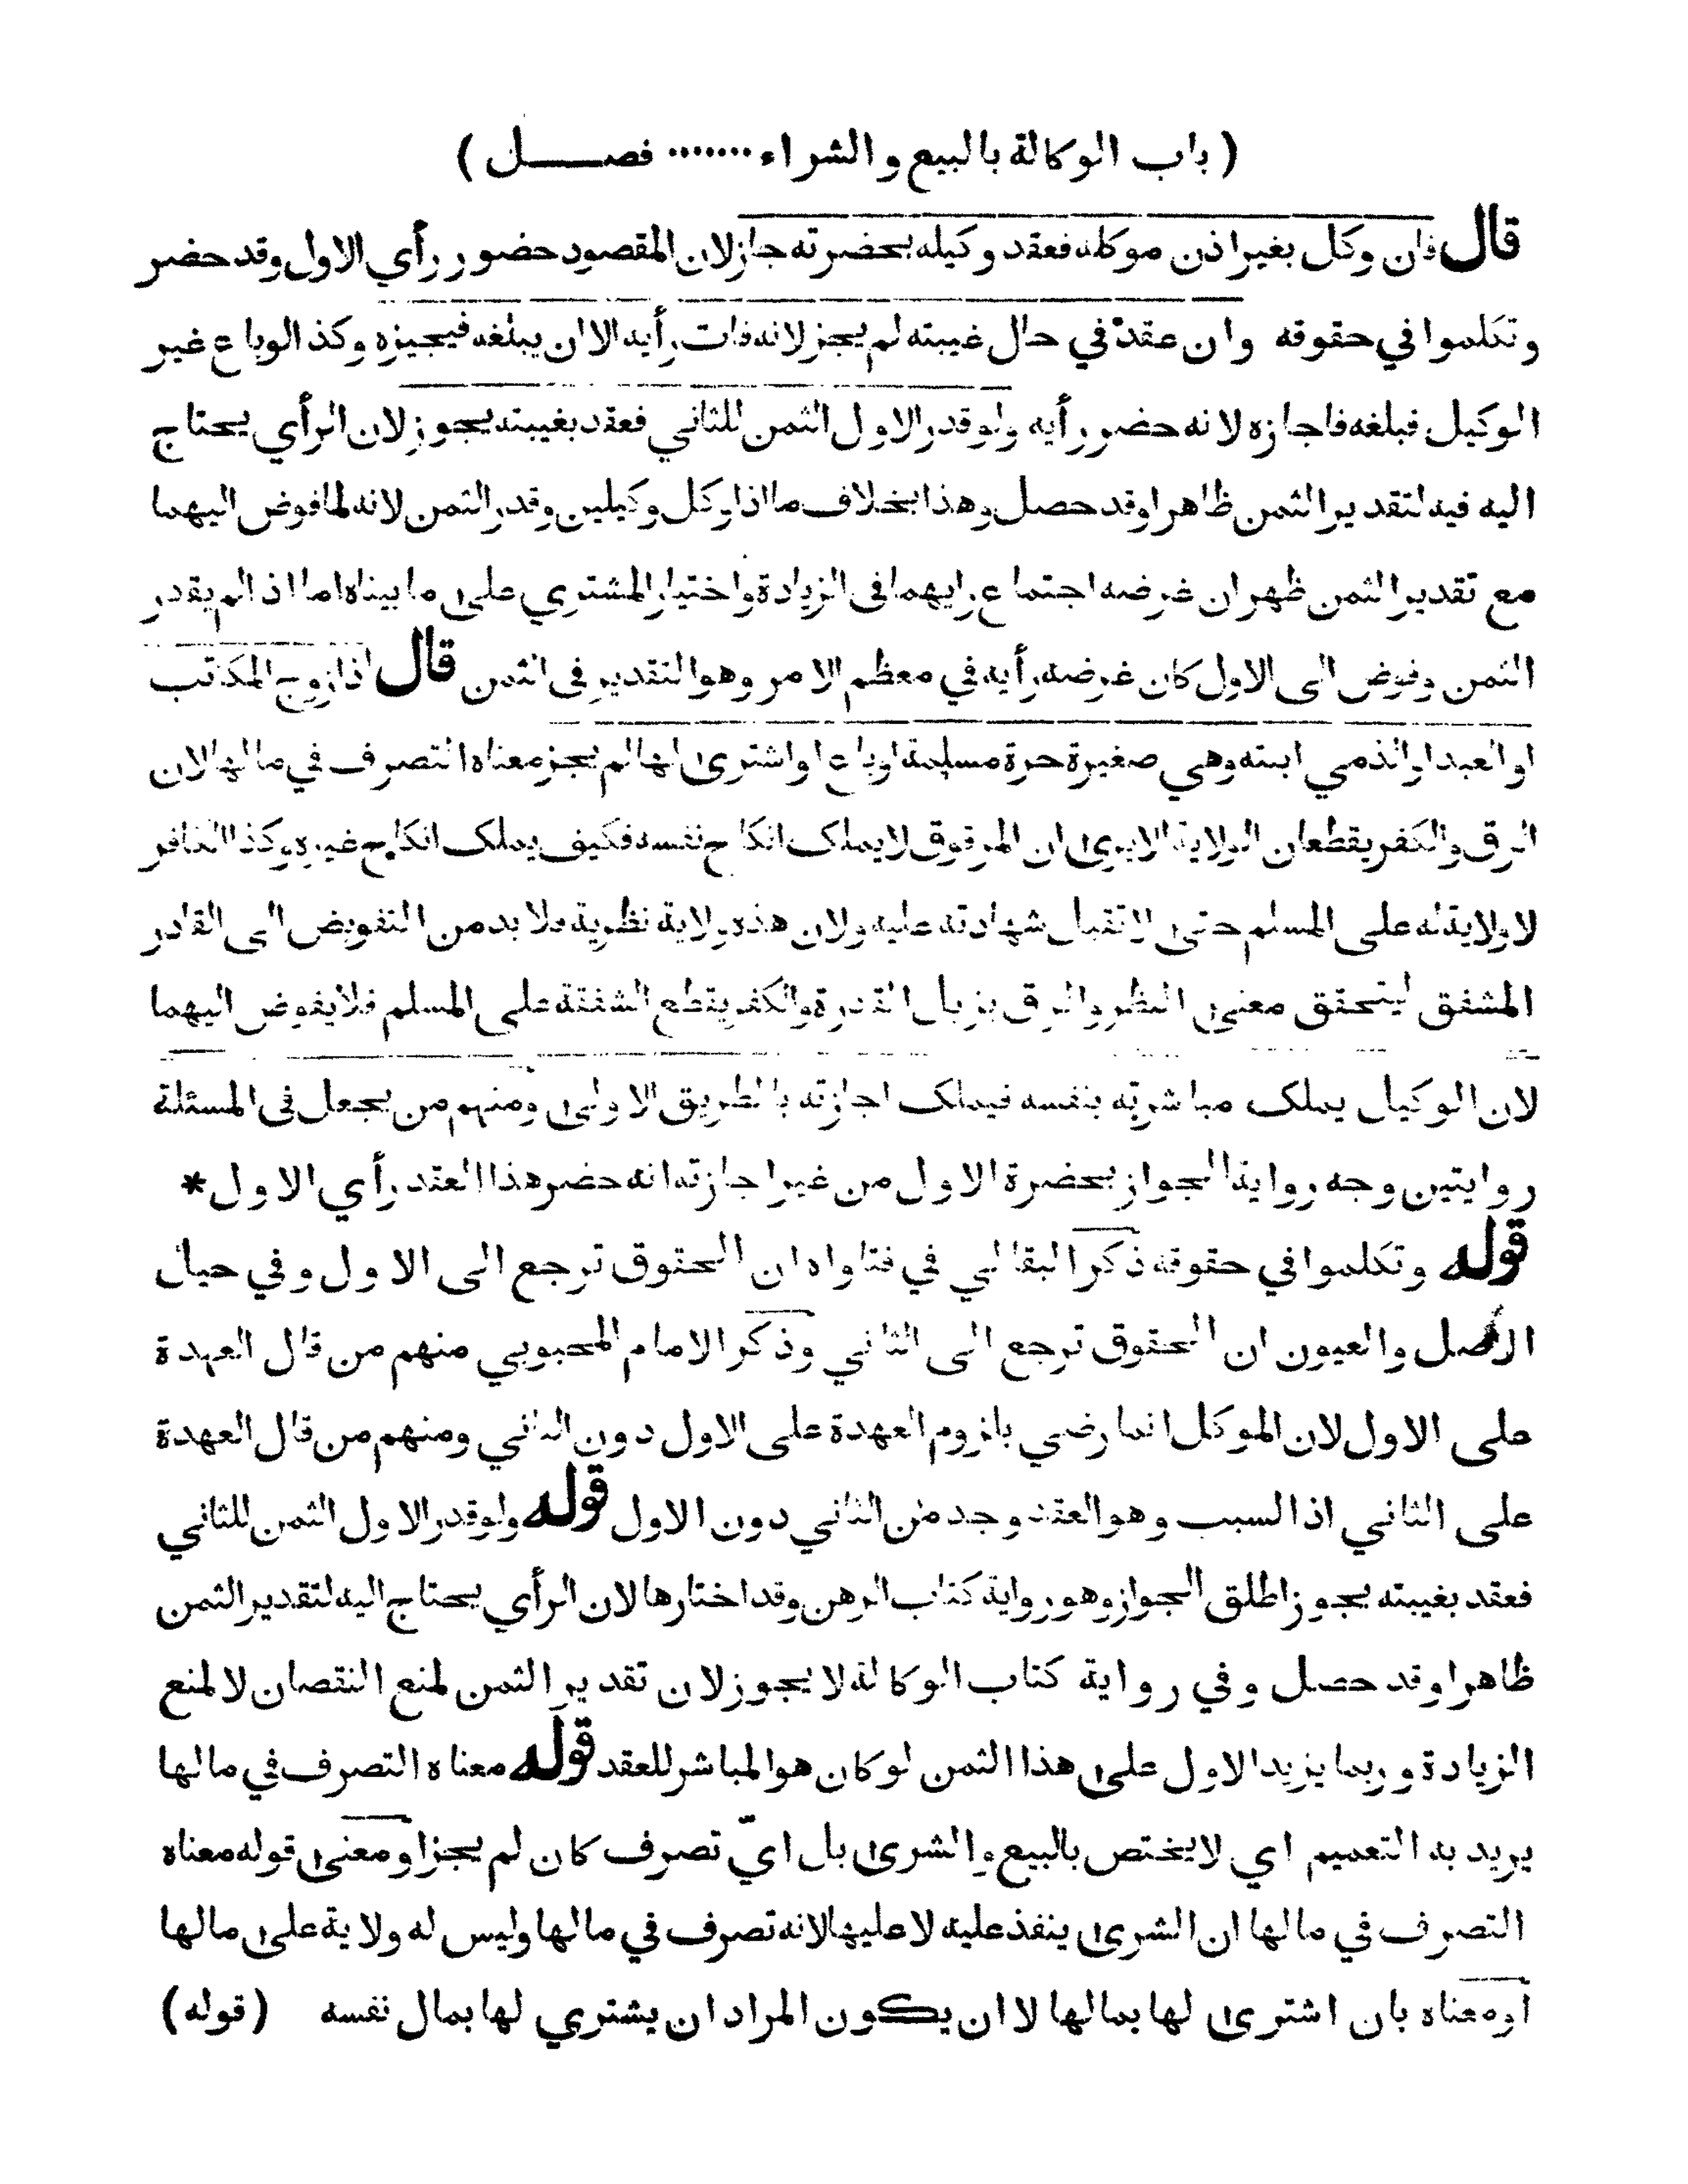 ( باب الوكالة بالبيع والشراء ....... فصـــــل )
قال فان وكل بغير اذن موكله فعقد وكيله بحضرته جاز لان المقصود حضور رأي الاول وقد حضر
وتكلموا في حقوقه وان عقد في حال غيبته لم يجز لانه فات رأيه الا ان يبلغه فيجيزه وكذا لو باع غير
الوكيل فبلغه فاجازه لانه حضر رأيه ولو قدر الاول الثمن للثاني فعقد بغيبته يجوز لان الرأي يحتاج
اليه فيه لتقدير الثمن ظاهرا وقد حصل وهذا بخلاف ما اذا وكل وكيلين وقدر الثمن لانه لما فوض اليهما
مع تقدير الثمن ظهر ان غرضه اجتماع رايهما فى الزيادة واختيار المشتري على ما بيناه اما اذا لم يقدر
الثمن وفوض الى الاول كان غرضه رأيه في معظم الامر وهو التقدير فى الثمن قال اذا زوج المكاتب
او العبد او الذمي ابنته وهي صغيرة حرة مسلمة او باع او اشترى لها لم يجز معناه التصرف في مالها لان
الرق والكفر يقطعان الولاية الا يرى ان المرقوق لا يملك انكاح نفسه فكيف يملك انكاح غيره وكذا الكافر
لا ولاية له على المسلم حتى لا تقبل شهادته عليه ولان هذه ولاية نظرية فلا بد من التفويض الى القادر
المشفق ليتحقق معنى النظر والرق يزيل القدرة والكفر يقطع الشفقة على المسلم فلا يفوض اليهما
لان الوكيل يملك مباشرته بنفسه فيملك اجازته بالطريق الاولى ومنهم من يجعل فى المسئلة
روايتين وجه رواية الجواز بحضرة الاول من غير اجازته انه حضر هذا العقد رأي الاول *
قوله وتكلموا في حقوقه ذكر البقالي في فتاواه ان الحقوق ترجع الى الاول وفي حيل
الاصل والعيون ان الحقوق ترجع الى الثاني وذكر الامام المحبوبي منهم من قال العهدة
على الاول لان الموكل انما رضي بلزوم العهدة على الاول دون الثاني ومنهم من قال العهدة
على الثاني اذ السبب وهو العقد وجد من الثاني دون الاول قوله ولو قدر الاول الثمن للثاني
فعقد بغيبته يجوز اطلق الجواز وهو رواية كتاب الرهن وقد اختارها لان الرأي يحتاج اليه لتقدير الثمن
ظاهرا وقد حصل وفي رواية كتاب الوكالة لا يجوز لان تقدير الثمن لمنع النقصان لا لمنع
الزيادة وربما يزيد الاول على هذا الثمن لو كان هو المباشر للعقد قوله معناه التصرف في مالها
يريد به التعميم اي لا يختص بالبيع والشرى بل ايّ تصرف كان لم يجز او معنى قوله معناه
التصرف في مالها ان الشرى ينفذ عليه لا عليها لانه تصرف في مالها وليس له ولاية على مالها
او معناه بان اشترى لها بمالها لا ان يكون المراد ان يشتري لها بمال نفسه (قوله)